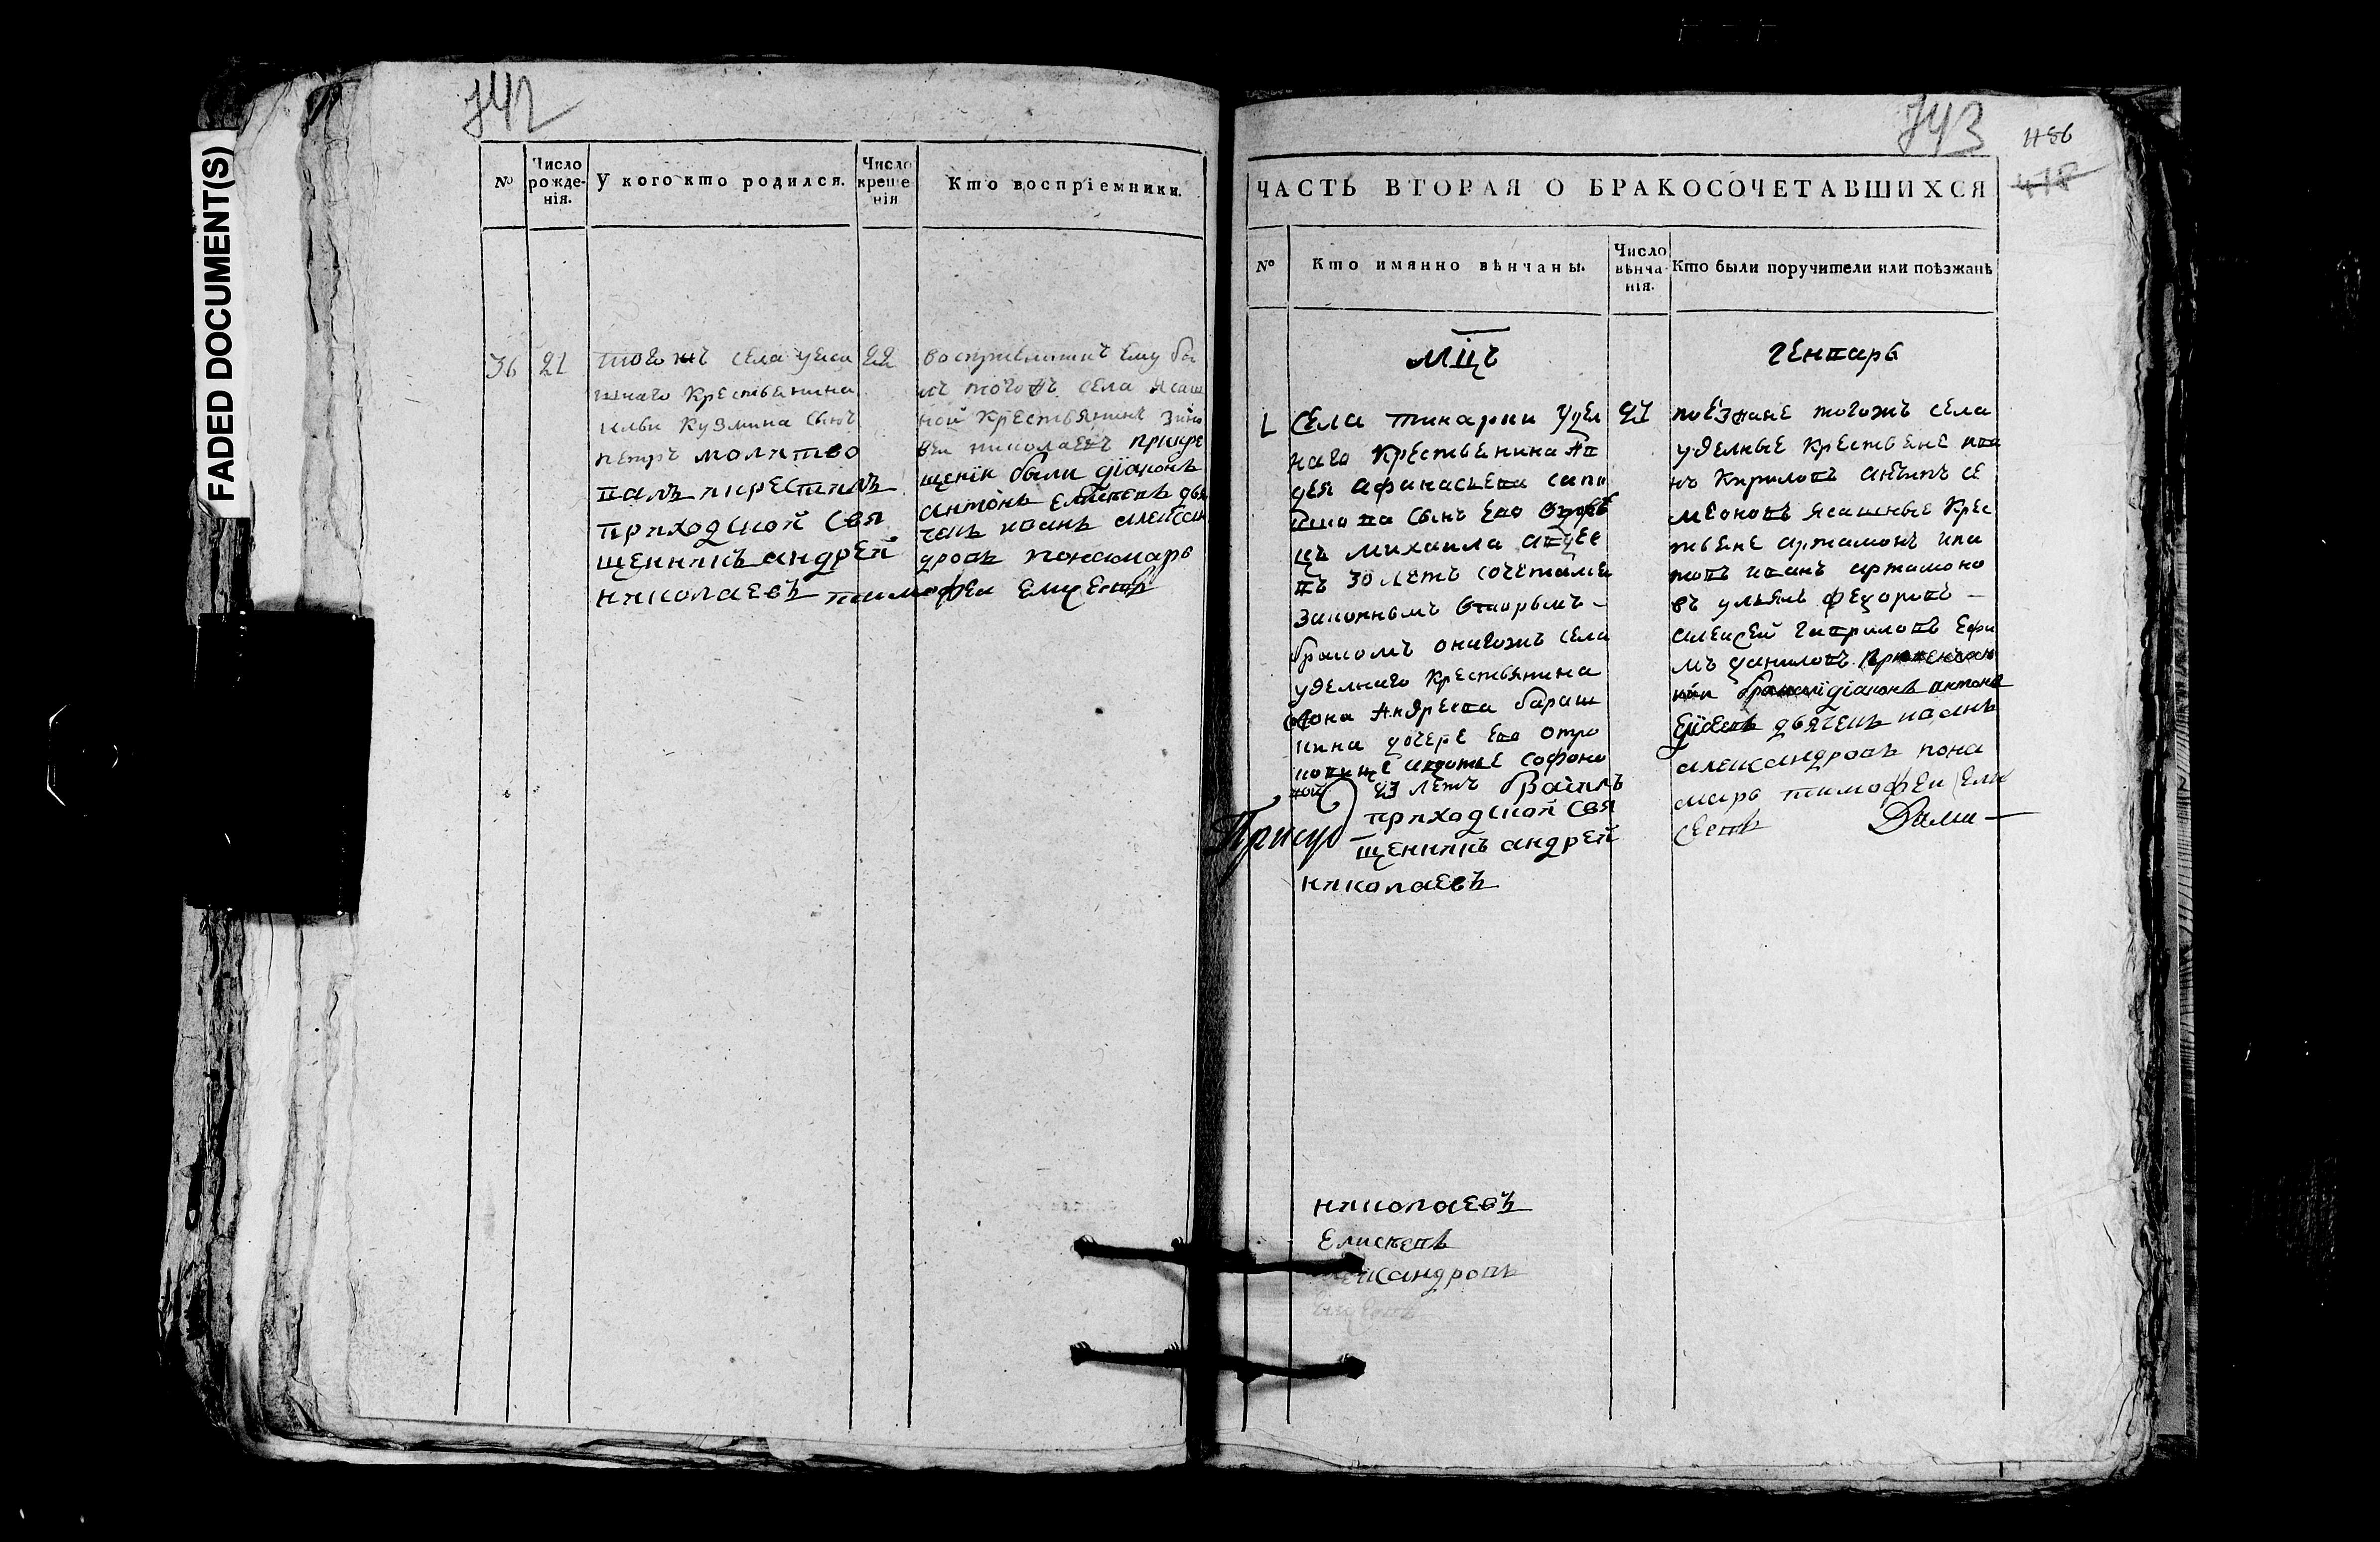 FADED DOCUMENT(S)
742
№ Число рожденія. У кого кто родился. Число крещенія Кто воспріемники.
36 21
тогожъ села
шнаго крестьянина
ильи кузмина сынъ
петръ молитво
валъ икрестилъ
приходцкой свя
щенникъ андрей
николаевъ
22
воспріемникъ ему бы
лъ тогожъ села ясаш
ной крестьянинъ
николаевъ прикре
щеніи были діаконъ
антонъ елисеевъ дья
чекъ иванъ алексан
дровъ понамарь
тимофеи елисеевъ
743
486
418
ЧАСТЬ ВТОРАЯ О БРАКОСОЧЕТАВШИХСЯ
№ Кто имянно вѣнчаны. Число вѣнчанія. Кто были поручители или поѣзжанѣ
мцъ генварь
1
села тинарки удел
наго крестьенина ав
дея афанасьева
сынъ ево
цъ михаила авдее
въ 30 летъ сочетался
законнымъ вторымъ
бракомъ онагожъ села
удельнаго крестьянина
софона андреева бараш
кина дочере ево отро
ковице авдотье софоно
вой 23 летъ
приходцкой свя
щенникъ андрей
николаевъ
Присуд
27
поезжане тогожъ села
уделные крестьене ива
нъ кириловъ антипъ се
меоновъ ясашные крес
тьене артамонъ ипа
товъ иванъ артамоно
въ ульянъ федоровъ
алексей гавриловъ ефи
мъ даниловъ привенчан
ніи діаконъ антонъ
елисеевъ дьячекъ иванъ
александровъ пона
марь тимофеи ели
сеевъ
николаевъ
елисеевъ
александровъ
елисеевъ